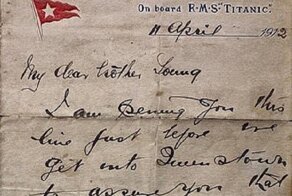 On board R·M·S·"TITANIC".
11 April 1912
My dear brother Young
I am penning you this
line just before we
get into Queenstown
to assure you that